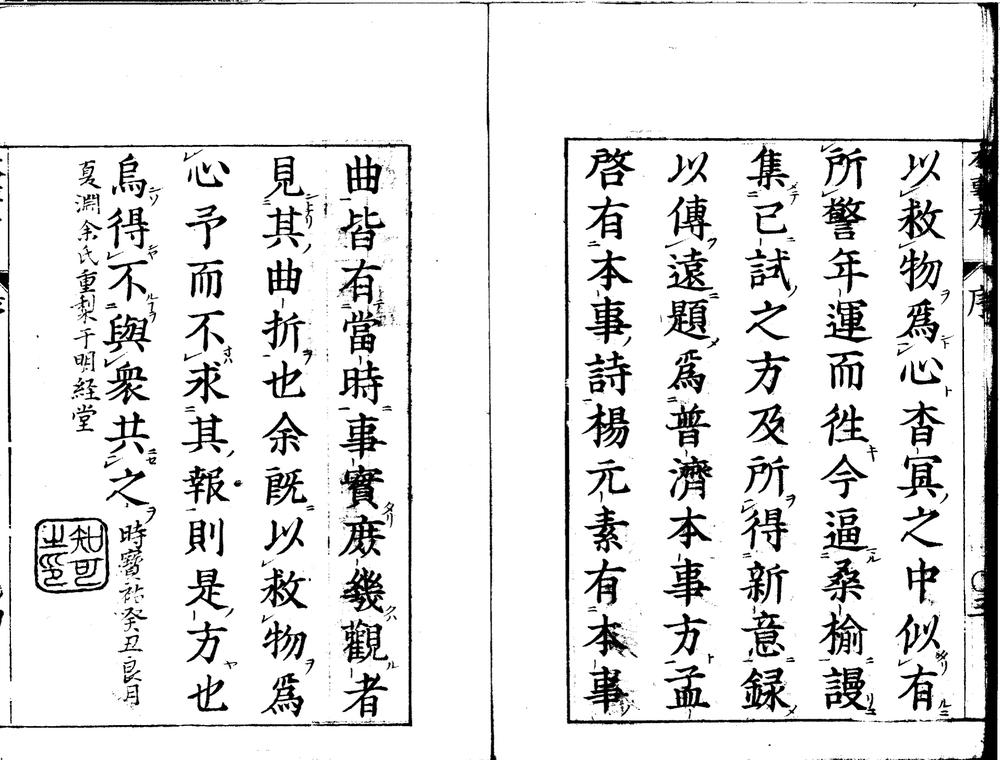 以救物爲心杳冥之中似有
所警年運而徃今逼桑榆謾
集已試之方及所得新意録
以傳遠題爲普濟本事方孟
啓有本事詩楊元素有本事
曲皆有當時事實庻幾觀者
見其曲折也余既以救物爲
心予而不求其報則是方也
烏得不與衆共之時寶祐癸丑良月
夏淵余氏重梨于明経堂
知可之印